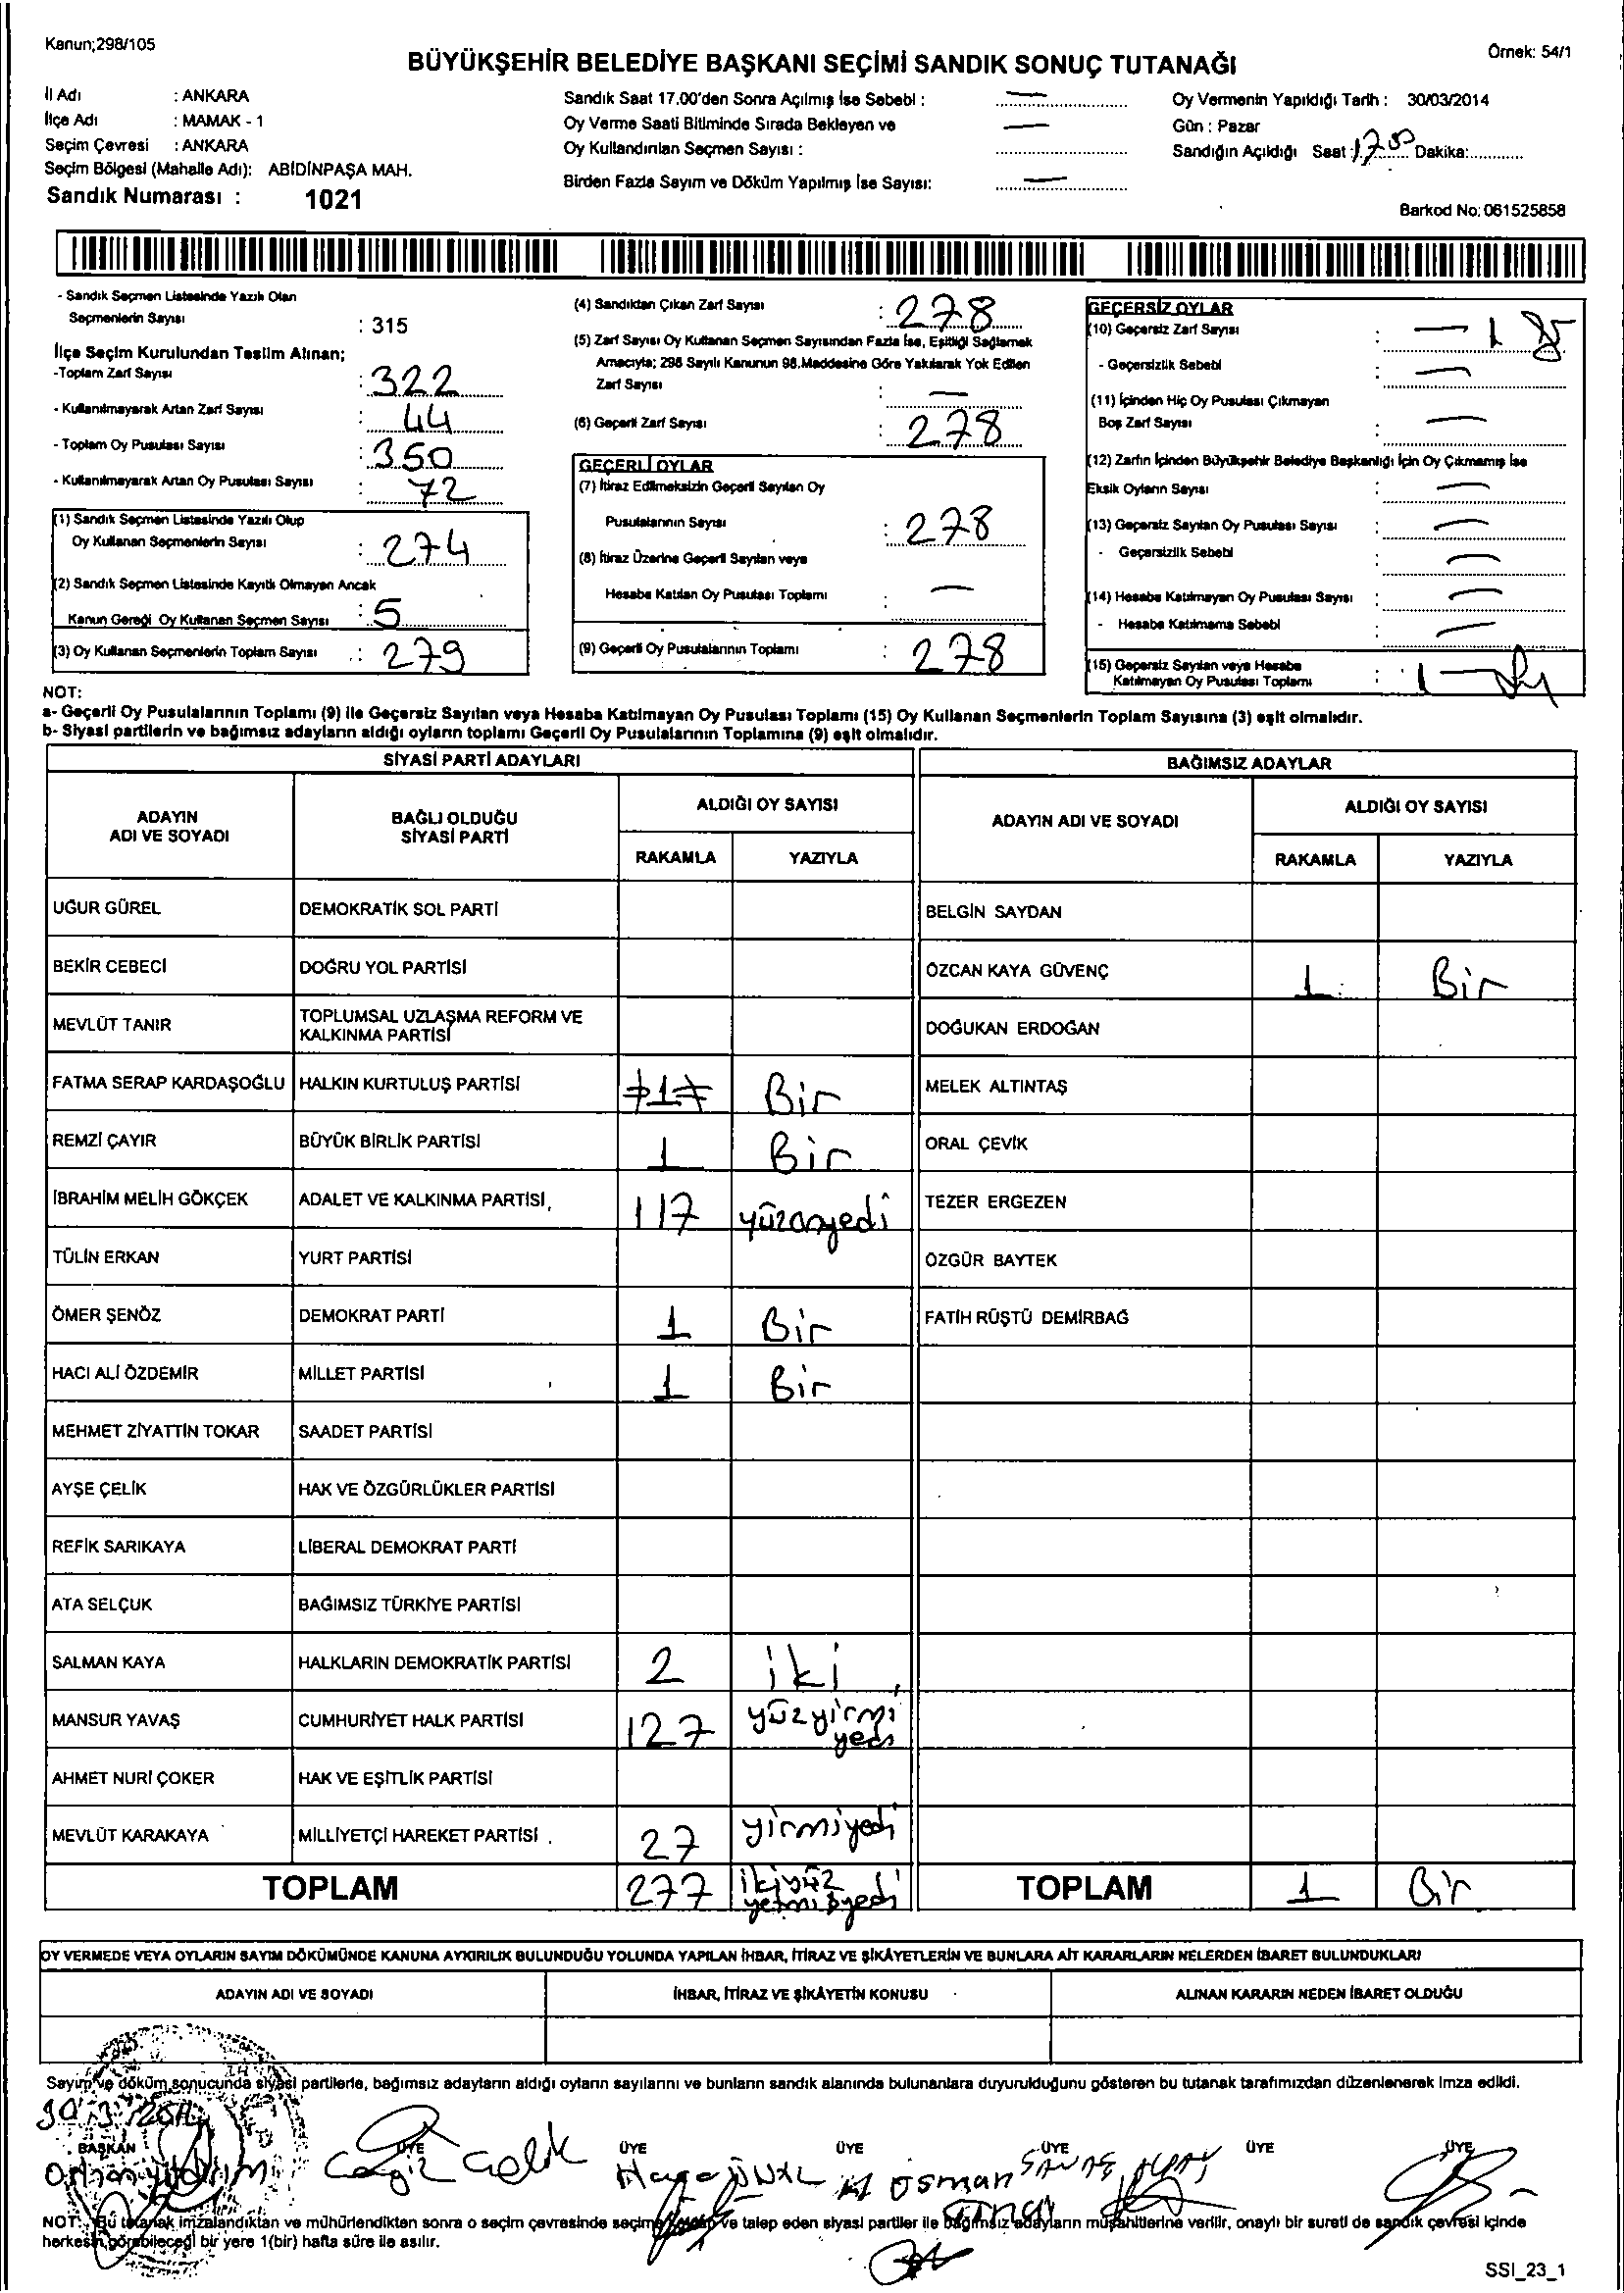 Kanun;298/105
BÜYÜKŞEHİR BELEDİYE BAŞKANI SEÇİMİ SANDIK SONUÇ TUTANAĞI
Örnek: 54/1
İl Adı : ANKARA
İlçe Adı : MAMAK - 1
Seçim Çevresi : ANKARA
Seçim Bölgesi (Mahalle Adı): ABİDİNPAŞA MAH.
Sandık Numarası : 1021
Sandık Saat 17.00'den Sonra Açılmış İse Sebebi : —
Oy Verme Saati Bitiminde Sırada Bekleyen ve
Oy Kullandırılan Seçmen Sayısı : —
Birden Fazla Sayım ve Döküm Yapılmış İse Sayısı: —
Oy Vermenin Yapıldığı Tarih : 30/03/2014
Gün : Pazar
Sandığın Açıldığı Saat : 17.00 Dakika:............
Barkod No: 061525858
- Sandık Seçmen Listesinde Yazılı Olan
Seçmenlerin Sayısı : 315
İlçe Seçim Kurulundan Teslim Alınan;
-Toplam Zarf Sayısı : 322
- Kullanılmayarak Artan Zarf Sayısı : 44
- Toplam Oy Pusulası Sayısı : 350
- Kullanılmayarak Artan Oy Pusulası Sayısı : 72
(1) Sandık Seçmen Listesinde Yazılı Olup
Oy Kullanan Seçmenlerin Sayısı : 274
(2) Sandık Seçmen Listesinde Kayıtlı Olmayan Ancak
Kanun Gereği Oy Kullanan Seçmen Sayısı : 5
(3) Oy Kullanan Seçmenlerin Toplam Sayısı : 279
(4) Sandıktan Çıkan Zarf Sayısı : 278
(5) Zarf Sayısı Oy Kullanan Seçmen Sayısından Fazla İse, Eşitliği Sağlamak
Amacıyla; 298 Sayılı Kanunun 98.Maddesine Göre Yakılarak Yok Edilen
Zarf Sayısı : —
(6) Geçerli Zarf Sayısı : 278
GEÇERLİ OYLAR
(7) İtiraz Edilmeksizin Geçerli Sayılan Oy
Pusulalarının Sayısı : 278
(8) İtiraz Üzerine Geçerli Sayılan veya
Hesaba Katılan Oy Pusulası Toplamı : —
(9) Geçerli Oy Pusulalarının Toplamı : 278
GEÇERSİZ OYLAR
(10) Geçersiz Zarf Sayısı : — 1
- Geçersizlik Sebebi : —
(11) İçinden Hiç Oy Pusulası Çıkmayan
Boş Zarf Sayısı : —
(12) Zarfın İçinden Büyükşehir Belediye Başkanlığı İçin Oy Çıkmamış İse
Eksik Oyların Sayısı : —
(13) Geçersiz Sayılan Oy Pusulası Sayısı : —
- Geçersizlik Sebebi : —
(14) Hesaba Katılmayan Oy Pusulası Sayısı : —
- Hesaba Katılmama Sebebi : —
(15) Geçersiz Sayılan veya Hesaba
Katılmayan Oy Pusulası Toplamı : 1 —
NOT:
a- Geçerli Oy Pusulalarının Toplamı (9) ile Geçersiz Sayılan veya Hesaba Katılmayan Oy Pusulası Toplamı (15) Oy Kullanan Seçmenlerin Toplam Sayısına (3) eşit olmalıdır.
b- Siyasi partilerin ve bağımsız adayların aldığı oyların toplamı Geçerli Oy Pusulalarının Toplamına (9) eşit olmalıdır.
SİYASİ PARTİ ADAYLARI
ADAYIN ADI VE SOYADI BAĞLI OLDUĞU SİYASİ PARTİ ALDIĞI OY SAYISI
RAKAMLA YAZIYLA
UĞUR GÜREL DEMOKRATİK SOL PARTİ
BEKİR CEBECİ DOĞRU YOL PARTİSİ
MEVLÜT TANIR TOPLUMSAL UZLAŞMA REFORM VE KALKINMA PARTİSİ
FATMA SERAP KARDAŞOĞLU HALKIN KURTULUŞ PARTİSİ 1 Bir
REMZİ ÇAYIR BÜYÜK BİRLİK PARTİSİ 1 Bir
İBRAHİM MELİH GÖKÇEK ADALET VE KALKINMA PARTİSİ 117 yüzonyedi
TÜLİN ERKAN YURT PARTİSİ
ÖMER ŞENÖZ DEMOKRAT PARTİ 1 Bir
HACI ALİ ÖZDEMİR MİLLET PARTİSİ 1 Bir
MEHMET ZİYATTİN TOKAR SAADET PARTİSİ
AYŞE ÇELİK HAK VE ÖZGÜRLÜKLER PARTİSİ
REFİK SARIKAYA LİBERAL DEMOKRAT PARTİ
ATA SELÇUK BAĞIMSIZ TÜRKİYE PARTİSİ
SALMAN KAYA HALKLARIN DEMOKRATİK PARTİSİ 2 iki
MANSUR YAVAŞ CUMHURİYET HALK PARTİSİ 127 yüzyirmi yedi
AHMET NURİ ÇOKER HAK VE EŞİTLİK PARTİSİ
MEVLÜT KARAKAYA MİLLİYETÇİ HAREKET PARTİSİ 27 yirmiyedi
TOPLAM 277 ikiyüz yetmişyedi
BAĞIMSIZ ADAYLAR
ADAYIN ADI VE SOYADI ALDIĞI OY SAYISI
RAKAMLA YAZIYLA
BELGİN SAYDAN
ÖZCAN KAYA GÜVENÇ 1 Bir
DOĞUKAN ERDOĞAN
MELEK ALTINTAŞ
ORAL ÇEVİK
TEZER ERGEZEN
ÖZGÜR BAYTEK
FATİH RÜŞTÜ DEMİRBAĞ
TOPLAM 1 Bir
OY VERMEDE VEYA OYLARIN SAYIM DÖKÜMÜNDE KANUNA AYKIRILIK BULUNDUĞU YOLUNDA YAPILAN İHBAR, İTİRAZ VE ŞİKÂYETLERİN VE BUNLARA AİT KARARLARIN NELERDEN İBARET BULUNDUKLARI
ADAYIN ADI VE SOYADI İHBAR, İTİRAZ VE ŞİKÂYETİN KONUSU ALINAN KARARIN NEDEN İBARET OLDUĞU
Sayım ve döküm sonucunda siyasi partilerle, bağımsız adayların aldığı oyların sayılarını ve bunların sandık alanında bulunanlara duyurulduğunu gösteren bu tutanak tarafımızdan düzenlenerek imza edildi.
BAŞKAN ÜYE ÜYE ÜYE ÜYE ÜYE ÜYE
Cengiz Çelik
Osman
NOT: Bu tutanak imzalandıktan ve mühürlendikten sonra o seçim çevresinde seçime katılan ve talep eden siyasi partiler ile bağımsız adayların müşahitlerine verilir, onaylı bir sureti de sandık çevresi içinde
herkesin görebileceği bir yere 1(bir) hafta süre ile asılır.
SSI_23_1